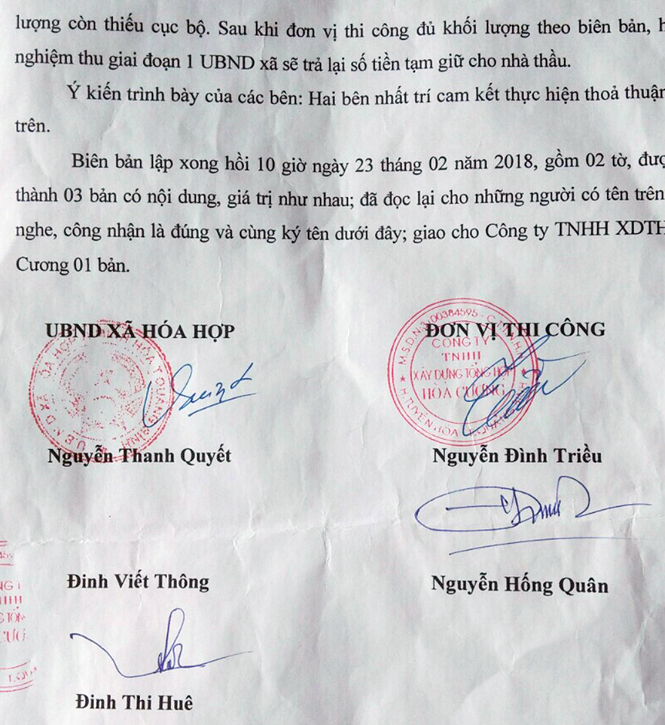 lượng còn thiếu cục bộ. Sau khi đơn vị thi công đủ khối lượng theo biên bản, h
nghiệm thu giai đoạn 1 UBND xã sẽ trả lại số tiền tạm giữ cho nhà thầu.
Ý kiến trình bày của các bên: Hai bên nhất trí cam kết thực hiện thoả thuận
trên.
Biên bản lập xong hồi 10 giờ ngày 23 tháng 02 năm 2018, gồm 02 tờ, đượ
thành 03 bản có nội dung, giá trị như nhau; đã đọc lại cho những người có tên trên
nghe, công nhận là đúng và cùng ký tên dưới đây; giao cho Công ty TNHH XDTH
Cương 01 bản.
UBND XÃ HÓA HỢP
ĐƠN VỊ THI CÔNG
CÔNG TY
TNHH
XÂY DỰNG TỔNG HỢP
HÒA CƯƠNG
Nguyễn Thanh Quyết
Nguyễn Đình Triều
Đinh Viết Thông
Nguyễn Hống Quân
Đinh Thi Huê